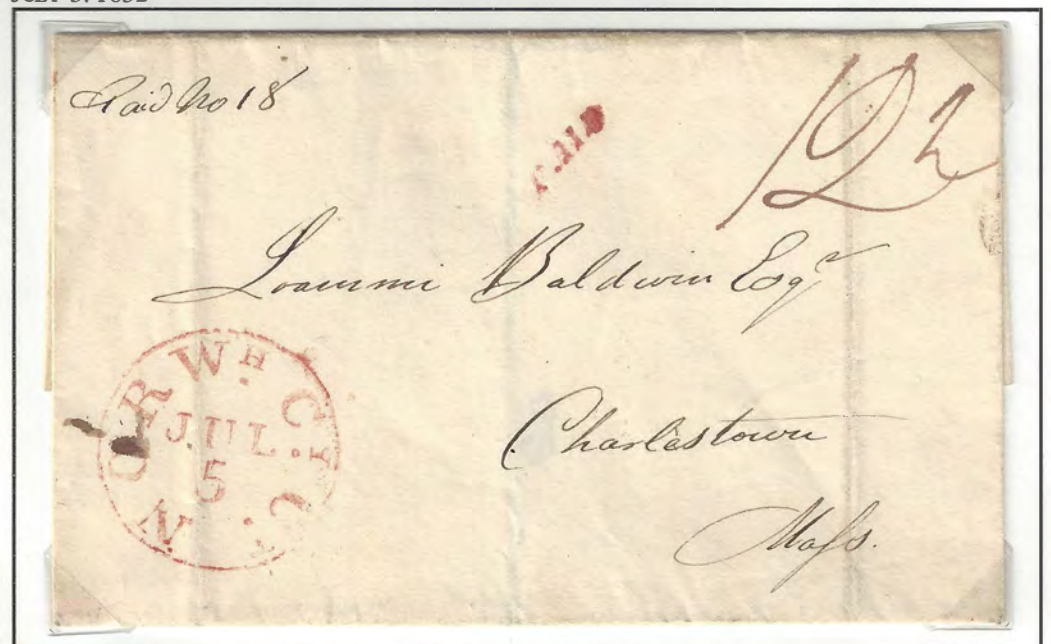 JULY 5. 1832
Paid No 18
PAID
12½
Loammi Baldwin Esqr
Charlestown
Mass.
NORWH CIY. CT.
JUL.
5